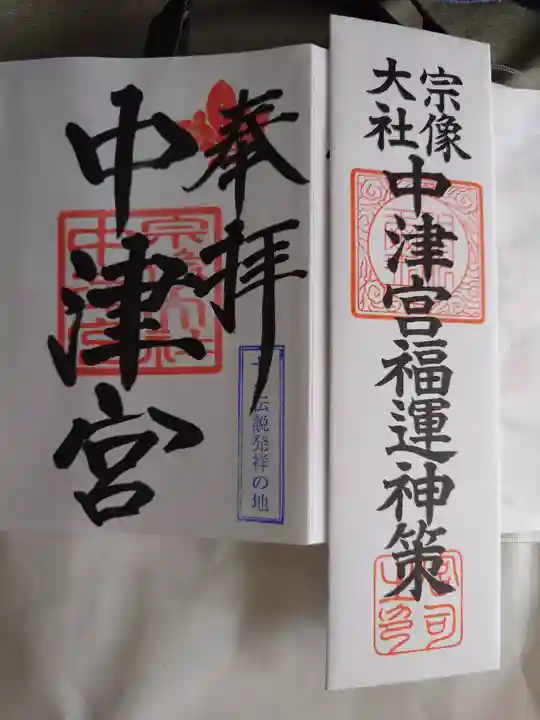 宗像
大社
中津宮福運神策
奉拝
中津宮
伝説発祥の地